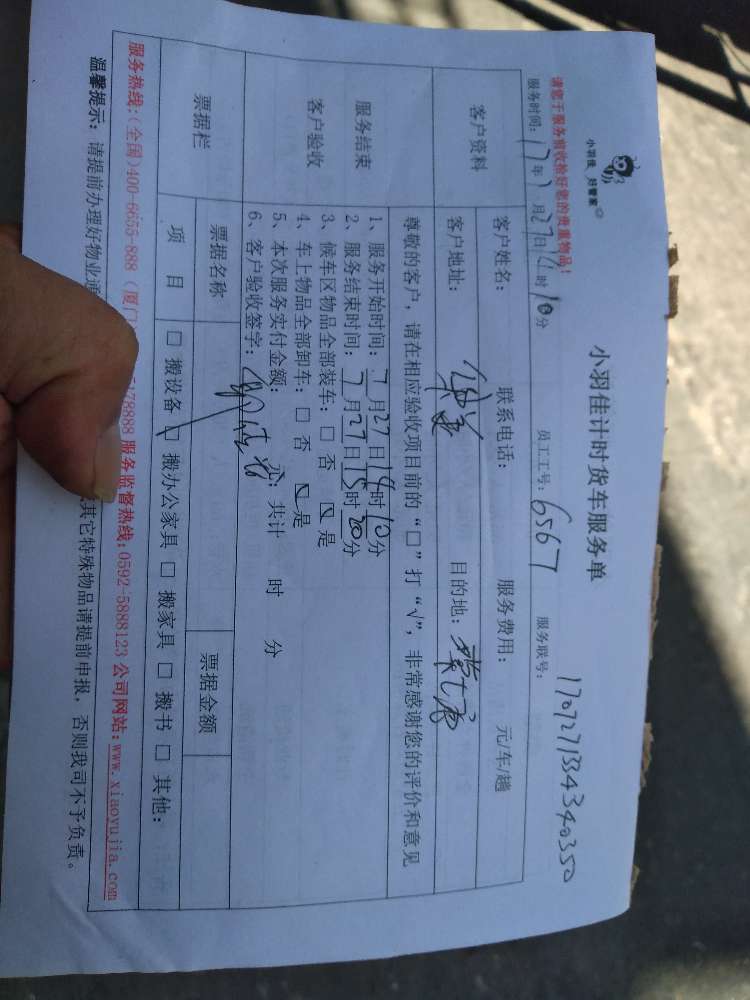 小羽佳 好管家
小羽佳计时货车服务单
请您于服务前收捡好您的贵重物品!
服务时间: 17年7月27日14时10分 员工工号: 6567 服务联号: 170727133434340350
客户资料
客户姓名: 联系电话: 服务费用: 元/车/趟
客户地址: 目的地:
尊敬的客户，请在相应验收项目前的“□”打“√”，非常感谢您的评价和意见
服务结束
客户验收
1、服务开始时间: 7月27日14时10分
2、服务结束时间: 7月27日15时20分
3、候车区物品全部装车: □ 否 ☑ 是
4、车上物品全部卸车: □ 否 ☑ 是
5、本次服务实付金额: 元; 共计 时 分
6、客户验收签字:
票据栏
票据名称 票据金额
项 目 □ 搬设备 □ 搬办公家具 □ 搬家具 □ 搬书 □ 其他:
服务热线:(全国)400-6655-888 (厦门 5178888 服务监督热线:0592-5888123 公司网站:www.xiaoyujia.com
温馨提示: 请提前办理好物业通 其它特殊物品请提前申报，否则我司不予负责。